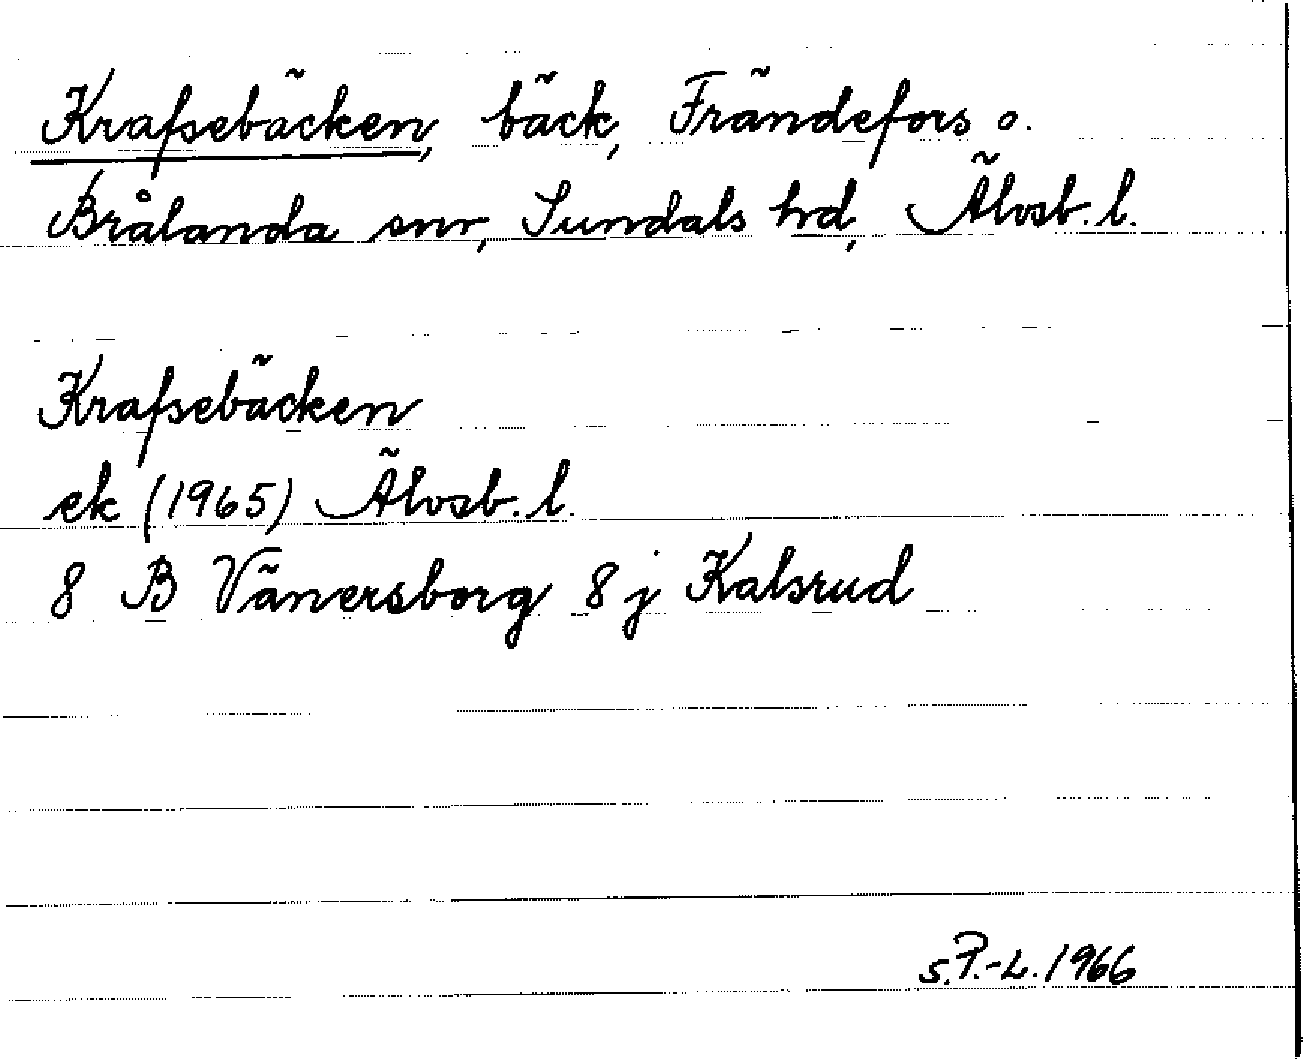 Krafsebäcken, bäck, Frändefors o.
Brålanda snr, Sundals hd, Älvsb. l.
Krafsebäcken
ek (1965) Älvsb. l.
8 B Vänersborg 8 j Kalsrud
S.P.-L. 1966